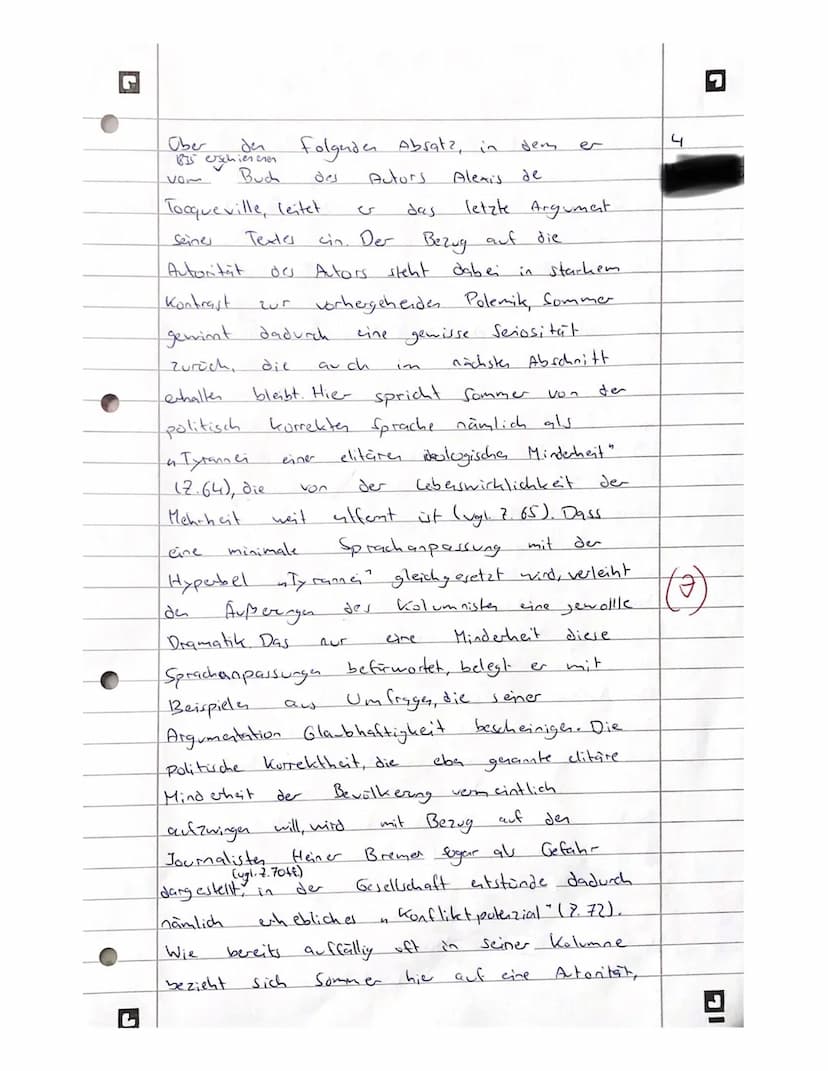 4
Über den folgenden Absatz, in dem er
1835 erschienenen
vom Buch des Autors Alexis de
Tocqueville, leitet er das letzte Argument
seines Textes ein. Der Bezug auf die
Autorität des Autors steht dabei in starkem
Kontrast zur vorhergehenden Polemik, Sommer
gewinnt dadurch eine gewisse Seriosität
zurück, die auch im nächsten Abschnitt
erhalten bleibt. Hier spricht Sommer von der
politisch korrekten Sprache nämlich als
„Tyrannei einer elitären ideologischen Minderheit"
(Z.64), die von der Lebenswirklichkeit der
Mehrheit weit entfernt ist (vgl. Z. 65). Dass
eine minimale Sprachanpassung mit der
Hyperbel „Tyrannei" gleichgesetzt wird, verleiht
den Äußerungen des Kolumnisten eine gewollte
Dramatik. Das nur eine Minderheit diese
Sprachanpassungen befürwortet, belegt er mit
Beispielen aus Umfragen, die seiner
Argumentation Glaubhaftigkeit bescheinigen. Die
politische Korrektheit, die eben genannte elitäre
Minderheit der Bevölkerung vermeintlich
aufzwingen will, wird mit Bezug auf den
Journalisten Heiner Bremer sogar als Gefahr
(vgl. Z. 70ff)
dargestellt, in der Gesellschaft entstünde dadurch
nämlich erhebliches „Konfliktpotenzial" (Z. 72).
Wie bereits auffällig oft in seiner Kolumne
bezieht sich Sommer hier auf eine Autorität,